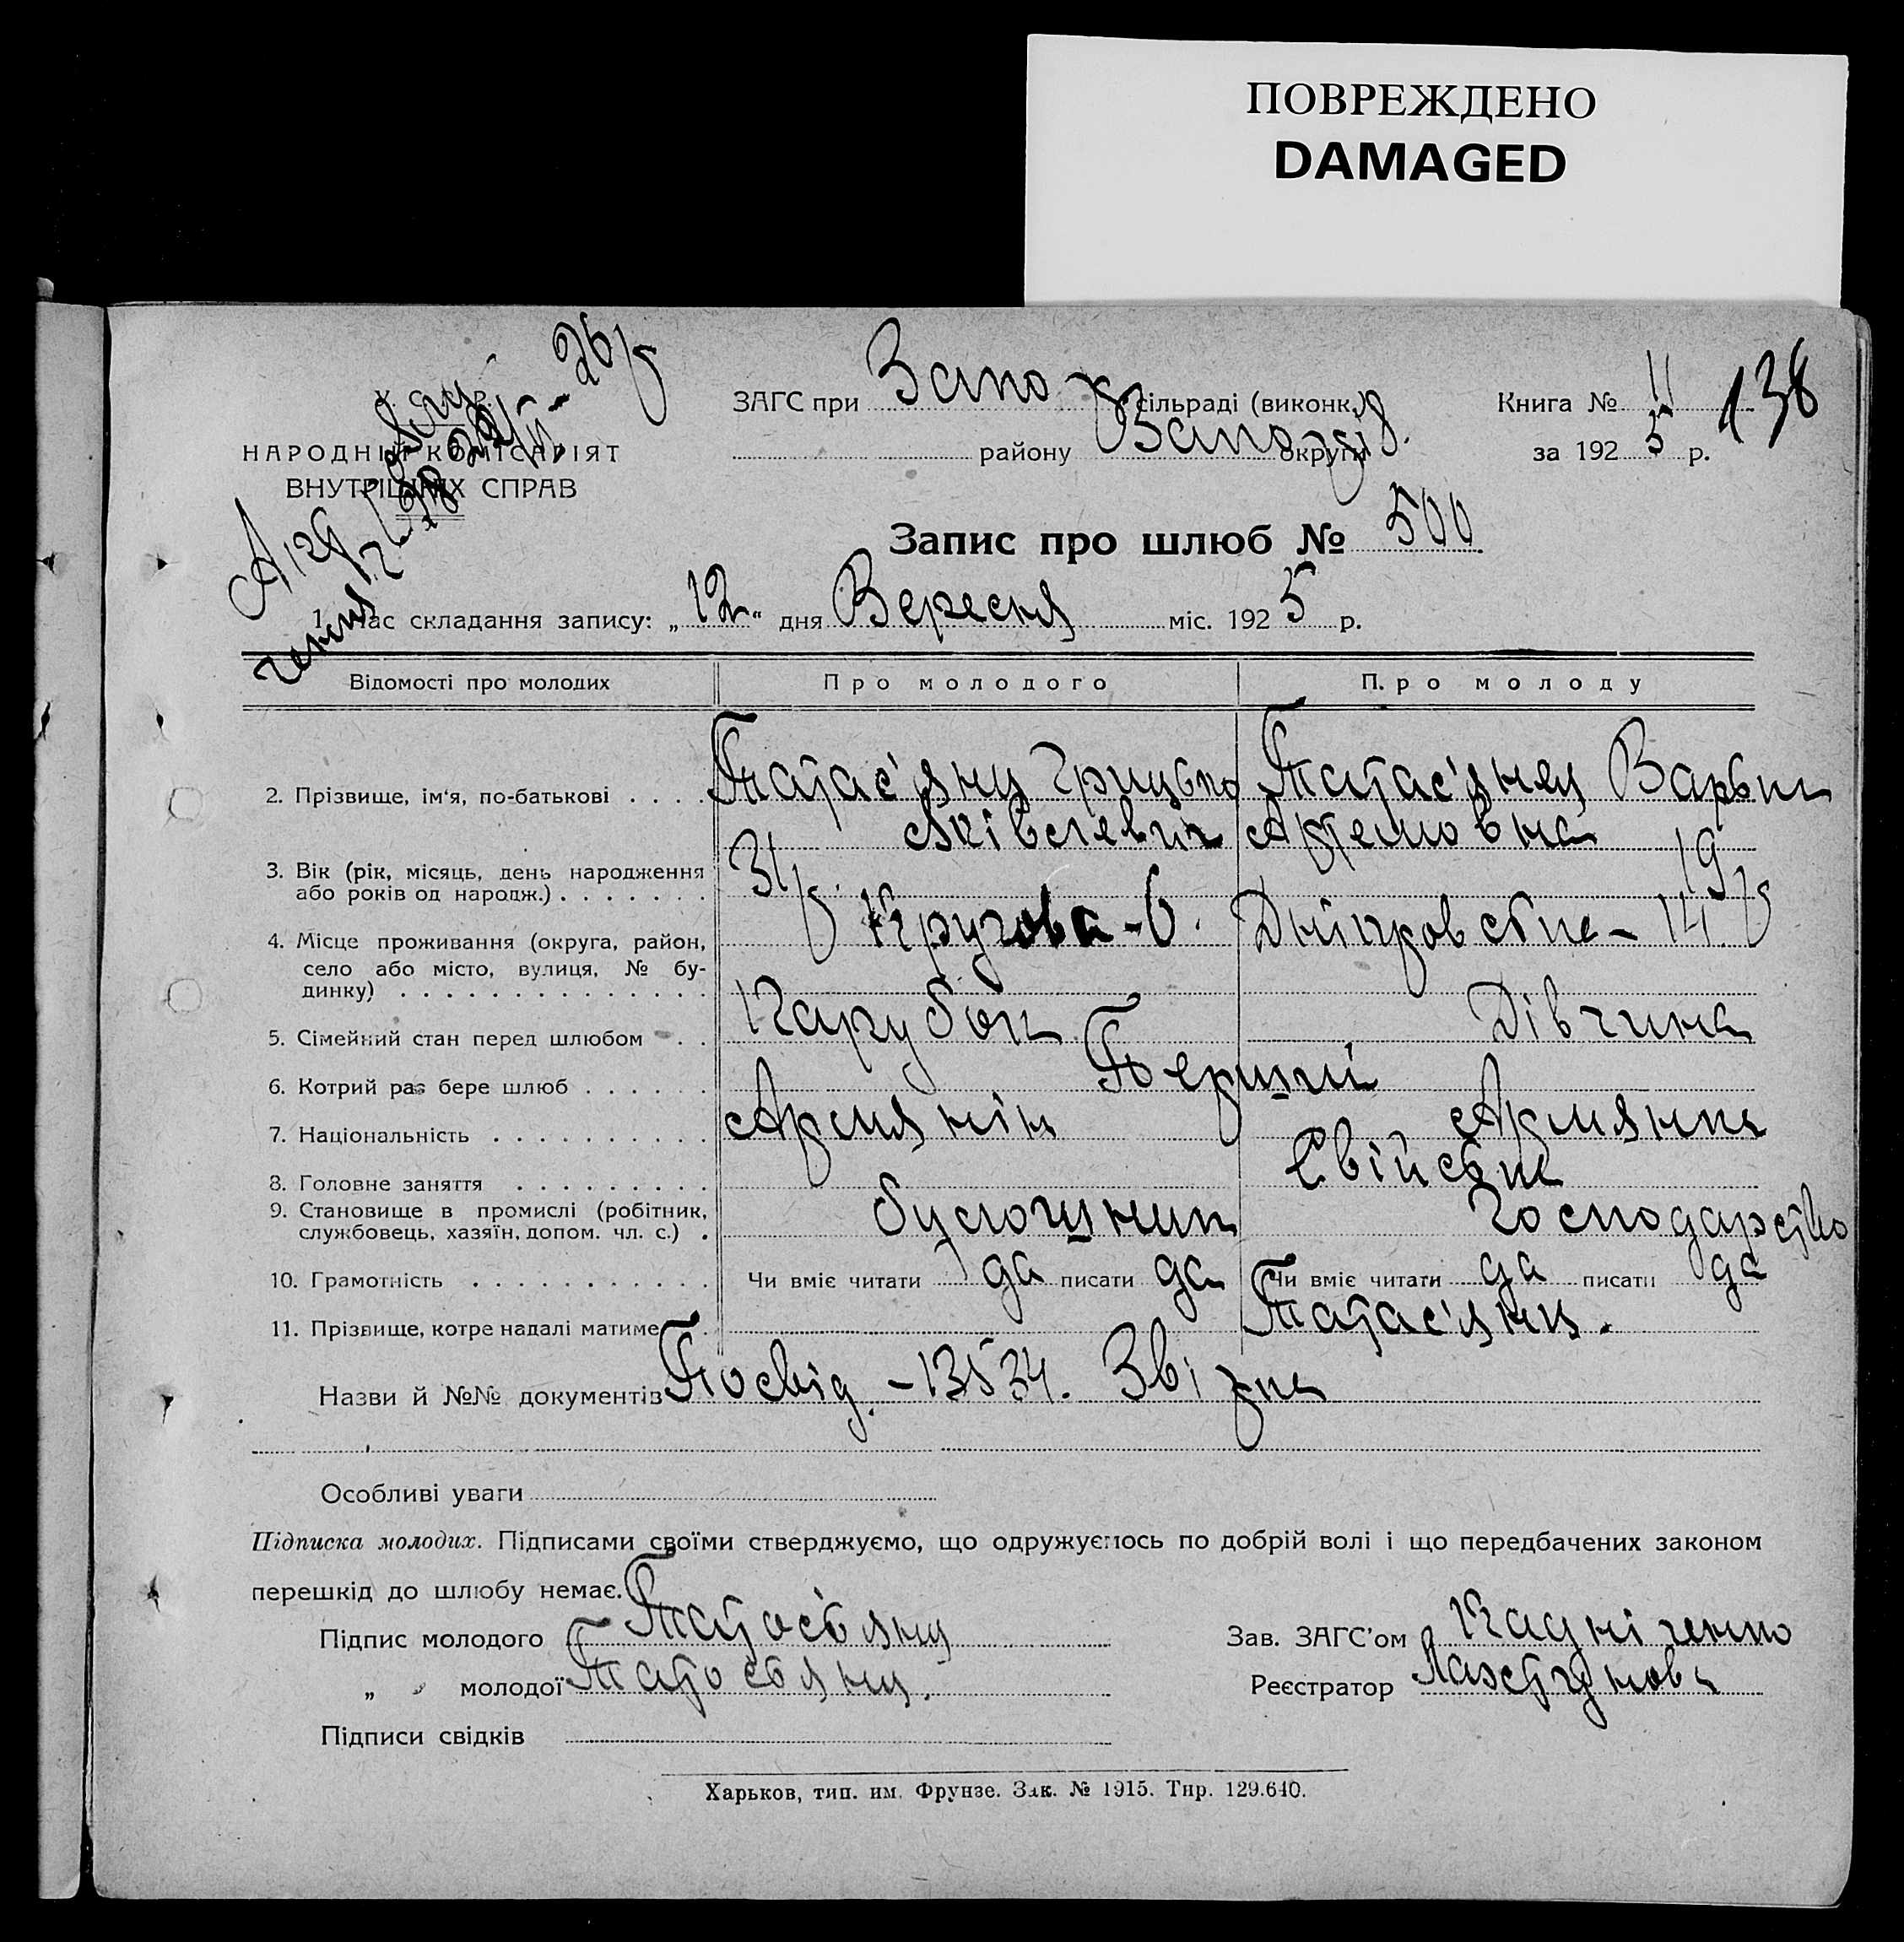 ПОВРЕЖДЕНО
DAMAGED
У. С. Р. Р.
НАРОДНІЙ КОМІСАРІЯТ
ВНУТРІШНІХ СПРАВ
ЗАГС при Запо сільраді (виконк.)
району округи
Книга № 11 138
за 1925 р.
Запис про шлюб № 500
1. Час складання запису: „12“ дня Вересня міс. 1925 р.
Відомості про молодих Про молодого Про молоду
2. Прізвище, ім‘я, по-батькові . . . . Татас'янц Грицько Татас'янц Варвки
Яківлевич Артемовна
3. Вік (рік, місяць, день народження
або років од народж.) . . . . . . . 31 19
4. Місце проживання (округа, район,
село або місто, вулиця, № бу-
динку) . . . . . . . . . . . . . . Кругова-6. Дніпровська - 14.
5. Сімейний стан перед шлюбом . . Парубок Дівчина
6. Котрий раз бере шлюб . . . . . . Перший
7. Національність . . . . . . . . . . Армянін Армянка
8. Головне заняття . . . . . . . . . Свійське
9. Становище в промислі (робітник,
службовець, хазяїн, допом. чл. с.) . булошник господарство
10. Грамотність . . . . . . . . . . . Чи вміє читати да писати да Чи вміє читати да писати да
11. Прізвище, котре надалі матиме Татас'янц.
Назви й №№ документів Посвід. - 13534.
Особливі уваги
Підписка молодих. Підписами своїми стверджуємо, що одружуємось по добрій волі і що передбачених законом
перешкід до шлюбу немає.
Підпис молодого Татосьянц
„ молодої Татосьянц.
Зав. ЗАГС’ом
Реєстратор
Підписи свідків
Харьков, тип. им. Фрунзе. Зак. № 1915. Тир. 129.640.